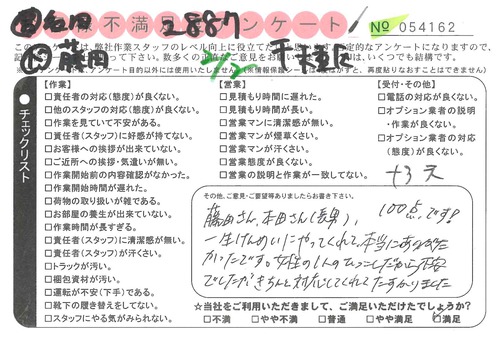 お客様不満足度アンケート
2887
№ 054162
このアンケートは、弊社作業スタッフのレベル向上に役立てたい
ご意見を
いくつでも結構です。
(※アンケート
アンケート目的以外には使用いたしません
(情報保護シールをはがすと、再度貼りなおすことはできません)
7/2
チェックリスト
【作業】
□責任者の対応(態度)が良くない。
□他のスタッフの対応(態度)が良くない。
□作業を見ていて不安がある。
□責任者(スタッフ)に好感が持てない。
□お客様への挨拶が出来ていない。
□ご近所への挨拶・気遣いが無い。
□作業開始前の内容確認がなかった。
□作業開始時間が遅れた。
□荷物の取り扱いが雑である。
□お部屋の養生が出来ていない。
□作業時間が長すぎる。
□責任者(スタッフ)に清潔感が無い。
□責任者(スタッフ)が汗くさい。
□トラックが汚い。
□梱包資材が汚い。
□運転が不安(下手)である。
□靴下の履き替えをしてない。
□スタッフにやる気がみられない。
【営業】
□見積もり時間に遅れた。
□見積もり時間が長い。
□営業マンに清潔感が無い。
□営業マンが煙草くさい。
□営業マンが汗くさい。
□営業態度が良くない。
□営業の説明と作業が一致してない。
【受付・その他】
□電話の対応が良くない。
□オプション業者の説明
・作業が良くない。
□オプション業者の対応
(態度)が良くない。
その他、ご意見・ご要望等ありましたらお書き下さい。
100点です!
藤田さん、本田さん(長男)、
一生けんめいにやってくれて、本当にありがた
かったです。女性の1人のひっこしだから不安
でしたがきちんと対応してくれてたすかりました
☆当社をご利用いただきまして、ご満足いただけたでしょうか?
□不満 □やや不満 □普通 □やや満足 ☑満足